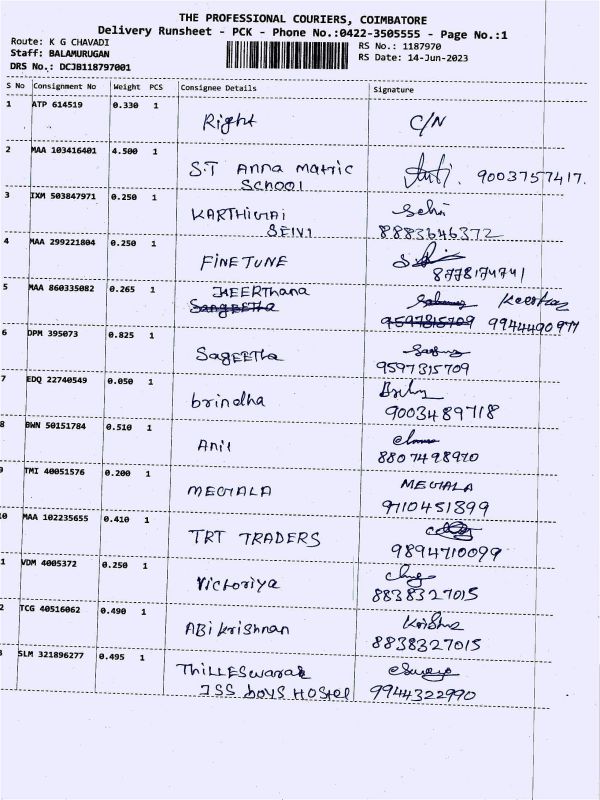 THE PROFESSIONAL COURIERS, COIMBATORE
Delivery Runsheet - PCK - Phone No.:0422-3505555 - Page No.:1
Route: K G CHAVADI
RS No.: 1187970
Staff: BALAMURUGAN
RS Date: 14-Jun-2023
DRS No.: DCJB118797001
S No Consignment No Weight PCS Consignee Details Signature
1 ATP 614519 0.330 1
Right C/N
2 MAA 103416401 4.500 1
S.T Anna matric 9003757417.
School
3 IXM 503847971 0.250 1
KARTHIGAI Selvi
SElVI 8883646372
4 MAA 299221804 0.250 1
FINETUNE
8778174741
5 MAA 860335082 0.265 1
KEERThana
Sangeetha 9597315709 9944490977
6 DPM 395073 0.825 1
SageeTha
9597315709
7 EDQ 22740549 0.050 1
brindha
9003489718
8 BWN 50151784 0.510 1
Anil
8807498970
9 TMI 40051576 0.200 1
MEGALA MEGALA
9710451899
10 MAA 102235655 0.410 1
TRT TRADERS
9894710099
1 VDM 4005372 0.250 1
Victoriya
8838327015
2 TCG 40516062 0.490 1
ABi krishnan Krishna
8838327015
3 SLM 321896277 0.495 1
ThiLLESwarak
JSS boys Hostel 9944322990